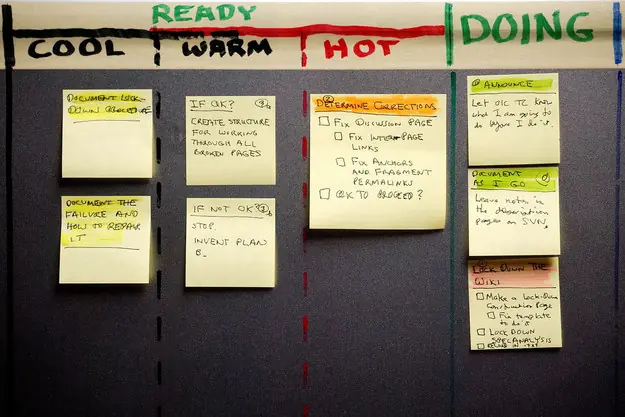 READY
COOL
WARM
HOT
DOING
DOCUMENT LOCK-
DOWN PROCEDURE
DOCUMENT THE
FAILURE AND
HOW TO REPAIR
IT
IF OK?
CREATE STRUCTURE
FOR WORKING
THROUGH ALL
BROKEN PAGES
IF NOT OK?
STOP
INVENT PLAN
B_
DETERMINE CORRECTIONS
FIX DISCUSSION PAGE
FIX INTER-PAGE
LINKS
FIX ANCHORS
AND FRAGMENT
PERMALINKS
OK TO PROCEED?
ANNOUNCE
Let OIC TC know
what I am going to
do before I do it.
DOCUMENT
AS I GO
Leave notes in
the discussion
pages on SVN.
LOCK DOWN THE
WIKI
Make a Lock-Down
Construction Page
Fix template
to do it
LOCK DOWN
SPEC ANALYSIS